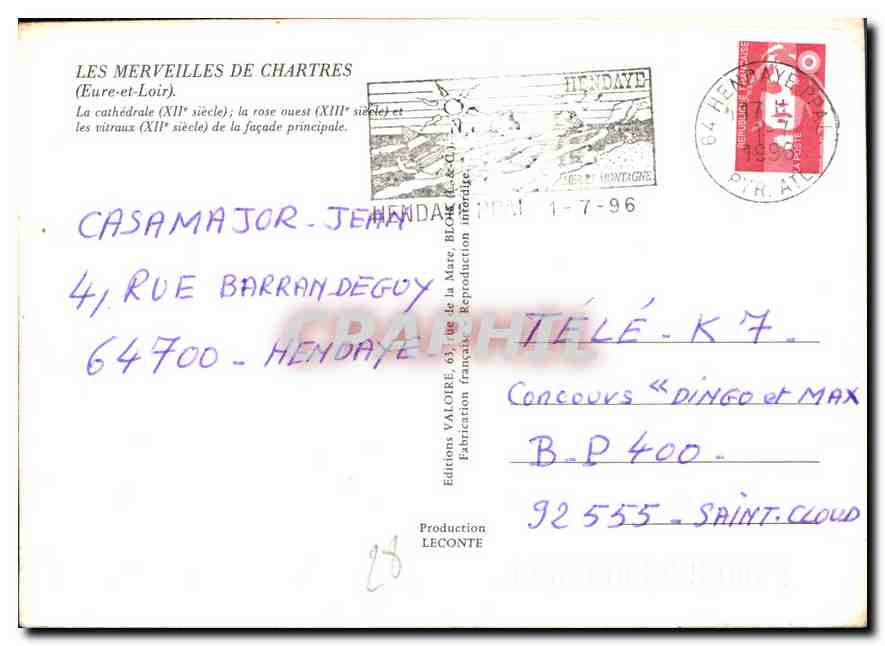 LES MERVEILLES DE CHARTRES
(Eure-et-Loir).
La cathédrale (XIIe siècle) ; la rose ouest (XIIIe siècle) et
les vitraux (XIIe siècle) de la façade principale.
HENDAYE
MER ET MONTAGNE
HENDAYE PPAL 1-7-96
64 HENDAYE PPAL
1-7
1996
PYR. ATL.
REPUBLIQUE FRANÇAISE
LA POSTE
CASAMAJOR - JEAN
4, RUE BARRANDEGUY
64700 - HENDAYE
Editions VALOIRE, 63, rue de la Mare, BLOIS (L.-&-C.).
Fabrication française - Reproduction interdite.
CPAPHIL
TÉLÉ - K7 -
Concours « DINGO et MAX
B - P 400 -
92555 - SAINT-CLOUD
Production
LECONTE
28